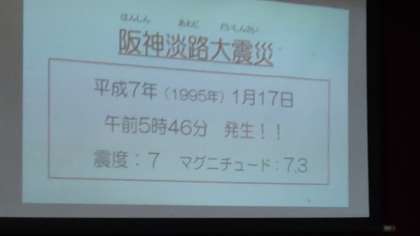 はんしん あわじ だいしんさい
阪神淡路大震災
平成7年（1995年）1月17日
午前5時46分 発生！！
震度：7 マグニチュード：7.3